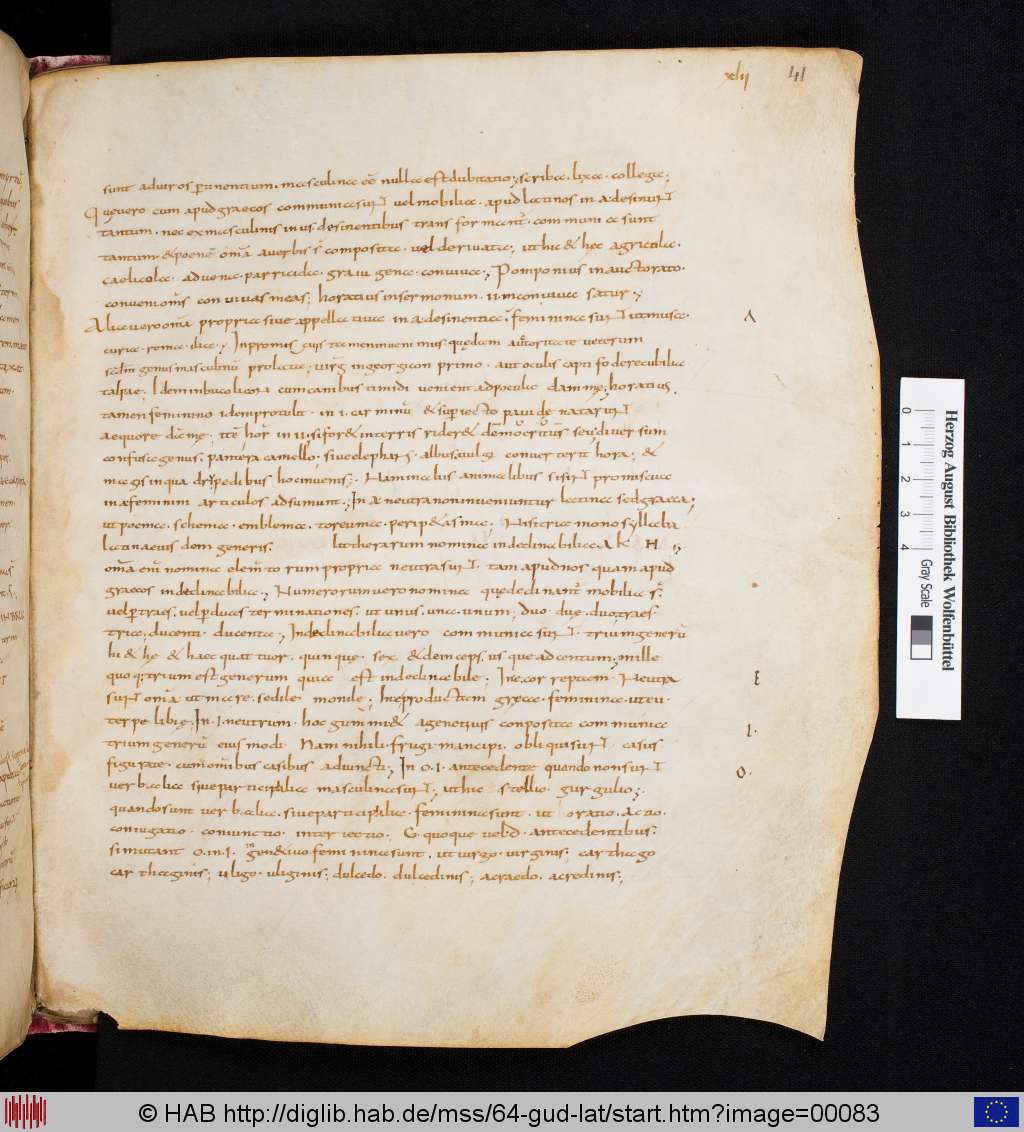 xlii 41
sunt ad viros pertinentium. masculina eē nulla est dubitatio; scriba. lixa. collega;
Quę vero cum apud graecos communia sunt vel mobilia. apud latinos in a. desinunt
tantum. nec ex masculinis in us desinentibus transformant᷑. communia sunt
tantum. & poene om̄a a verbis s̄ composita. vel derivata; ut hic & hec agricola.
caolicola. advena. parricida. graiugena. conviva; Pomponius in auctorato.
convenioms̄ convivas meas; horatius in sermonum. ii. in conviva satur;
Alia vero om̄a propria sive appellativa in a. desinentia. feminina sunt ut musa.
curia. roma. In promiscuis tam meninveni mus quędam auctoritate veterum
secdm̄ genus masculinū prolata; virḡ in georgicon primo. aut oculis capti fodere cubilia
talpae; Idem in bucolicon cum canibus timidi venient ad pocula dammę; horatius.
tamen feminino idem protulit. in i. carminū & superiecto pavidę natarunt
aequore dammę; Itē hor̄ in ii. si for& in terris rider& democritus seu diversum
confusa genus. panthera camello. sive elephans. albus. vulgi converterit hora; &
magis in qua dripedibus hoc invenis; Nam in alus animalibus si sint promiscua
in a feminini articulos adsumunt; In a neutra non inveniuntur latina sed graeca;
ut poema. schema. emblema. toreuma. perip&asma; Nisi tria monosyllaba
latina eius dem generis. litterarum nomina indeclinabilia A K H
om̄a enī nomina elem̄torum propria neutra sunt. tam apud nos quam apud
graecos indeclinabilia; Numerorum vero nomina quę declinant᷑ mobilia s̄.
vel per traes. vel per duas terminationes. ut unus. una. unum; duo. duę. duo; traes
tria; ducenti ducenta; Indeclinabilia vero communia sunt. trium generū
hi & hę & haec quattuor. quinque. sex. & deinceps. usque ad centum; mille
quoq; trium est generum quia est indeclinabile; In e. correptam. Neutra
sunt om̄a ut mare. sedile monile; In e productam gręca. feminina. ut eu
terpe libię; In. I. neutrum. hoc gum̄mi & a gen&ivis conposita communia
trium generū eius modi Nam nihili. frugi. mancipi. obliqui sunt casus
figurate. cum om̄ibus casibus adiuncti; In o. I. antecedente quando non sunt
verbalia sive participalia masculina sunt; ut hic stellio. gurgulio;
quando sunt verbalia. sive participalia. feminina sunt. ut oratio. actio.
coniugatio. coniunctio. interiectio. G. quoque vel. d. antecedentibus;
si mutant o. in. I. in gen&ivo feminina sunt. ut virgo. virginis; carthago
carthaginis; uligo. uliginis; dulcedo. dulcedinis; acraedo. acredinis;
A
E
I.
O.
Herzog August Bibliothek Wolfenbüttel
0 1 2 3 4
Gray Scale
© HAB http://diglib.hab.de/mss/64-gud-lat/start.htm?image=00083